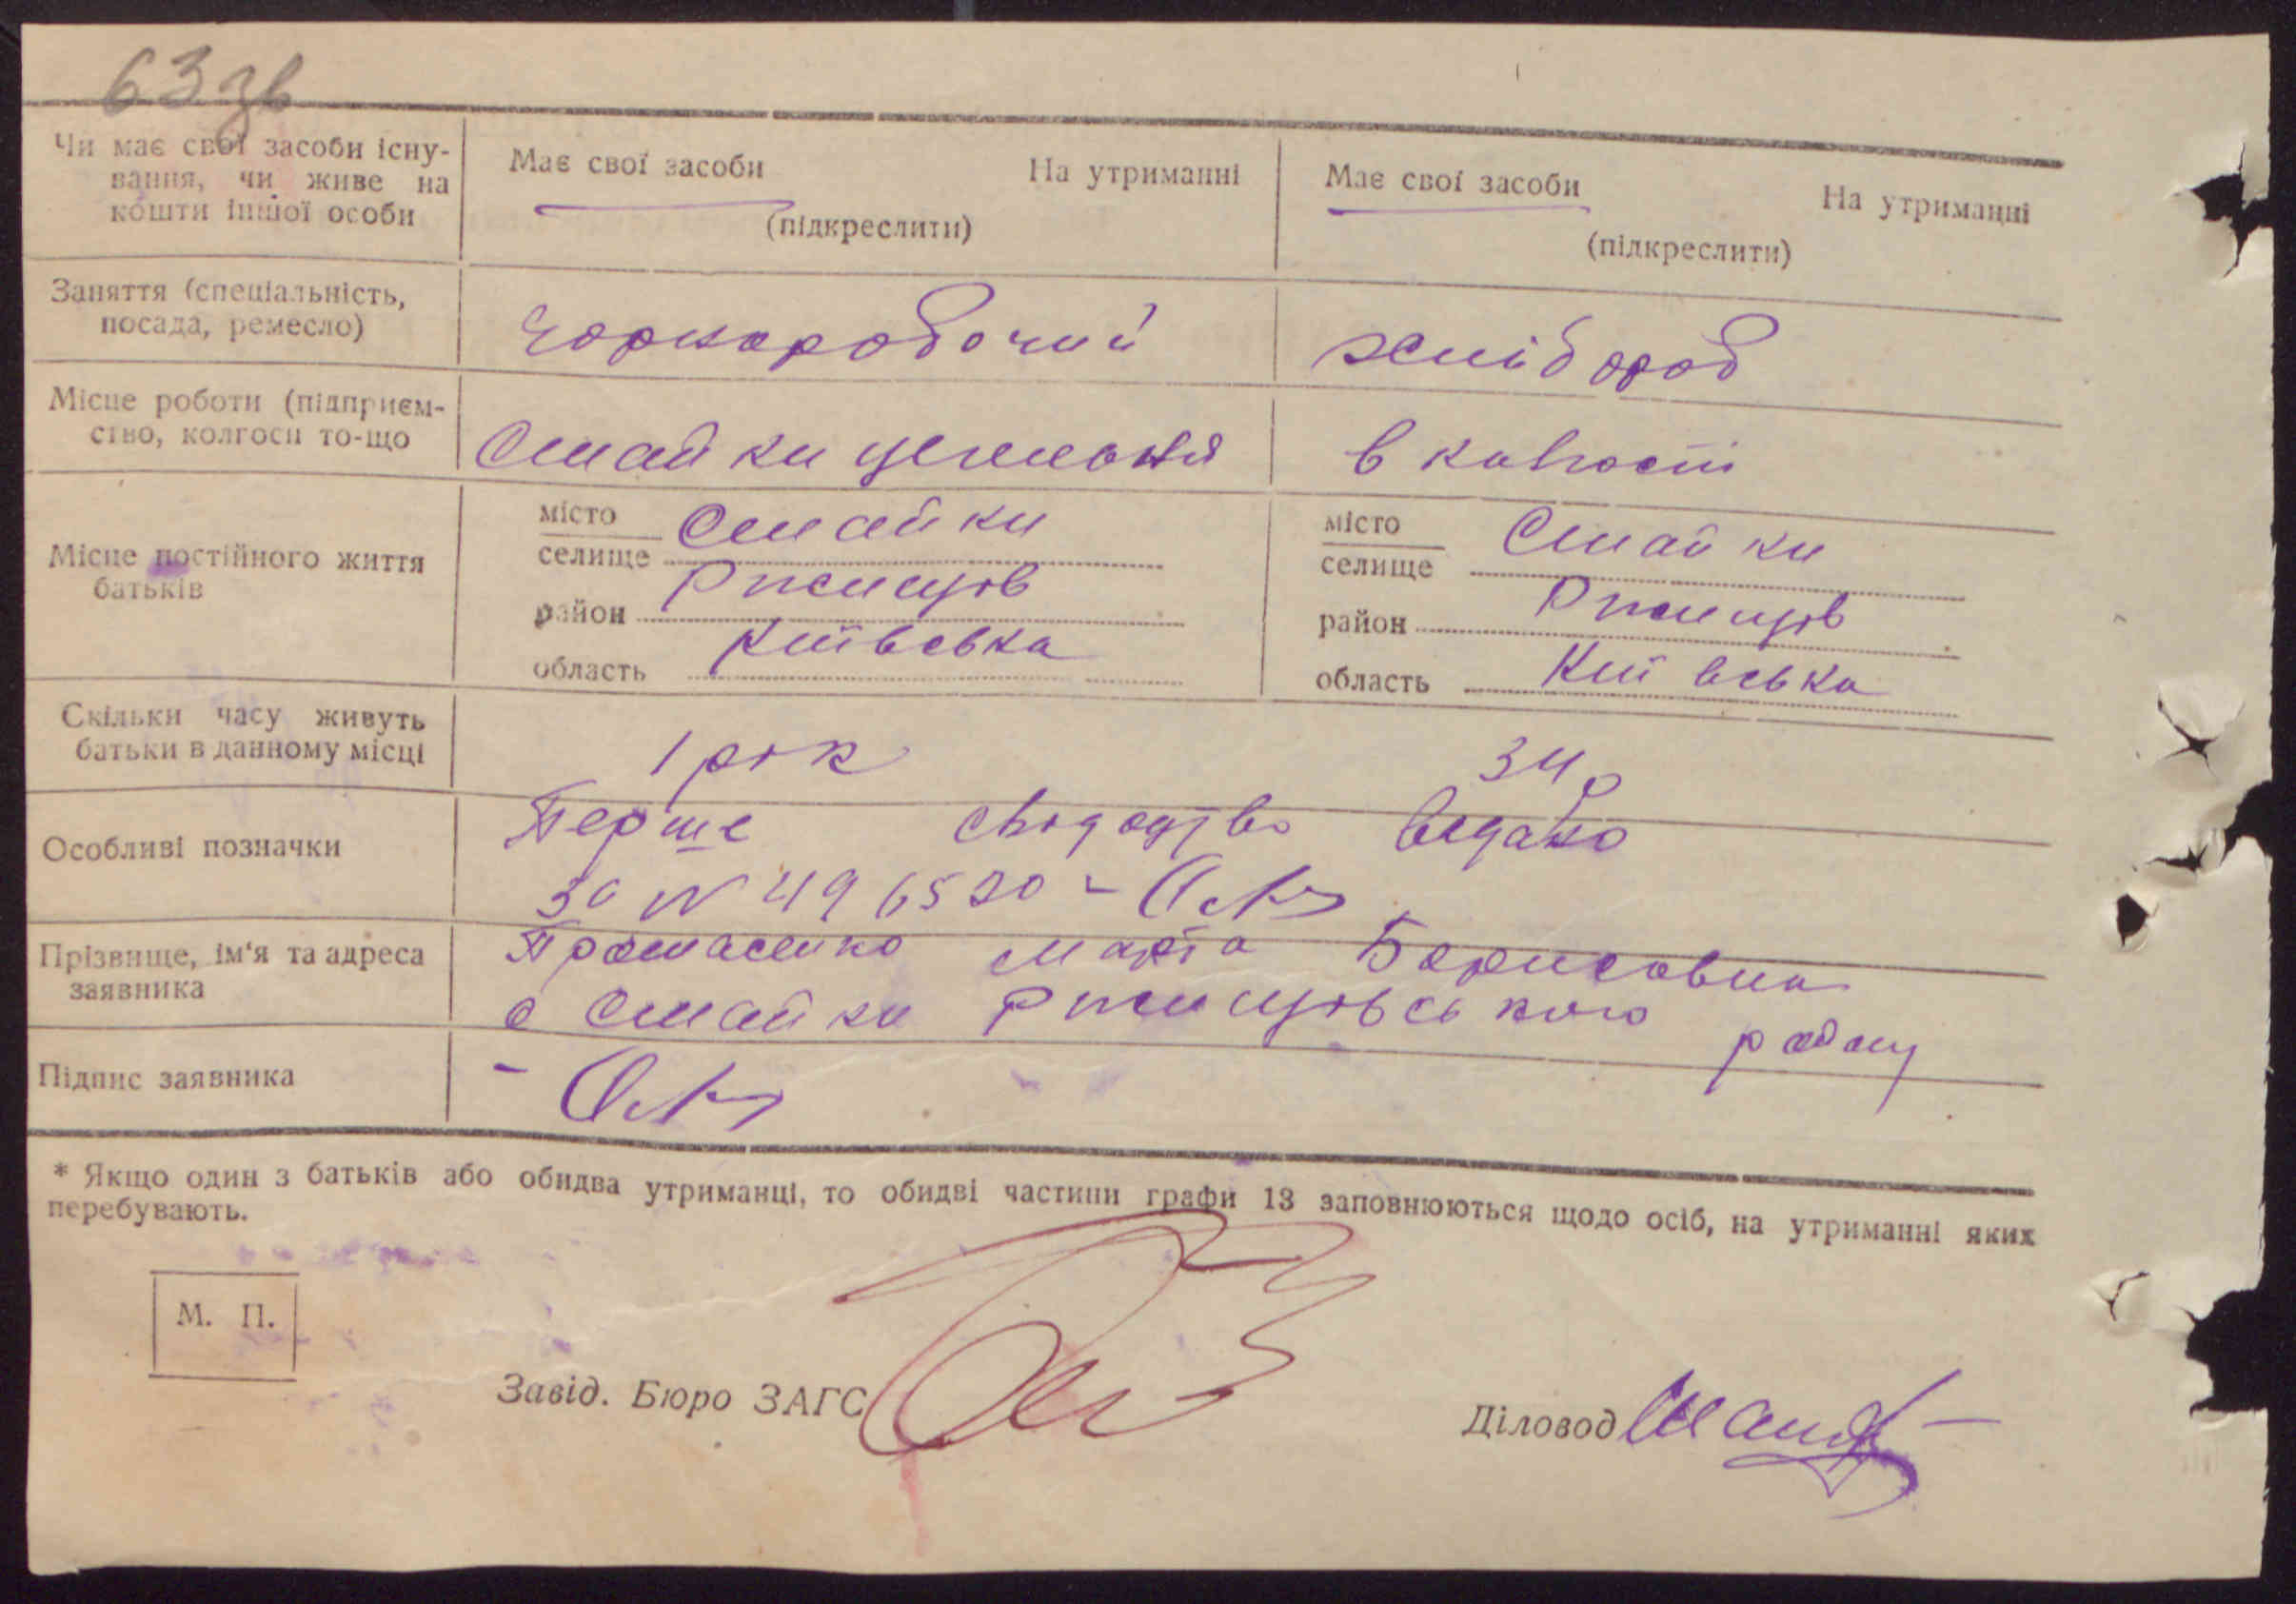 63 зв
Чи має свої засоби існу-
вання, чи живе на
кошти іншої особи
Має свої засоби На утриманні
(підкреслити)
Має свої засоби На утриманні
(підкреслити)
Заняття (спеціальність,
посада, ремесло)
Чорноробочий
хлібороб
Місце роботи (підприєм-
ство, колгосп то-що
Стайки цегельня
в колгоспі
Місце постійного життя
батьків
місто
селище Стайки
район Ржищів
область Київська
місто
селище Стайки
район Ржищів
область Київська
Скільки часу живуть
батьки в данному місці
1 рік
34 р
Особливі позначки
Перше свідодтво видано
за №
Прізвище, ім'я та адреса
заявника
Марта Борисовна
с Стайки Ржищівського району
Підпис заявника
* Якщо один з батьків або обидва утриманці, то обидві частини графи 13 заповнюються щодо осіб, на утриманні яких
перебувають.
М. П.
Завід. Бюро ЗАГС
Діловод